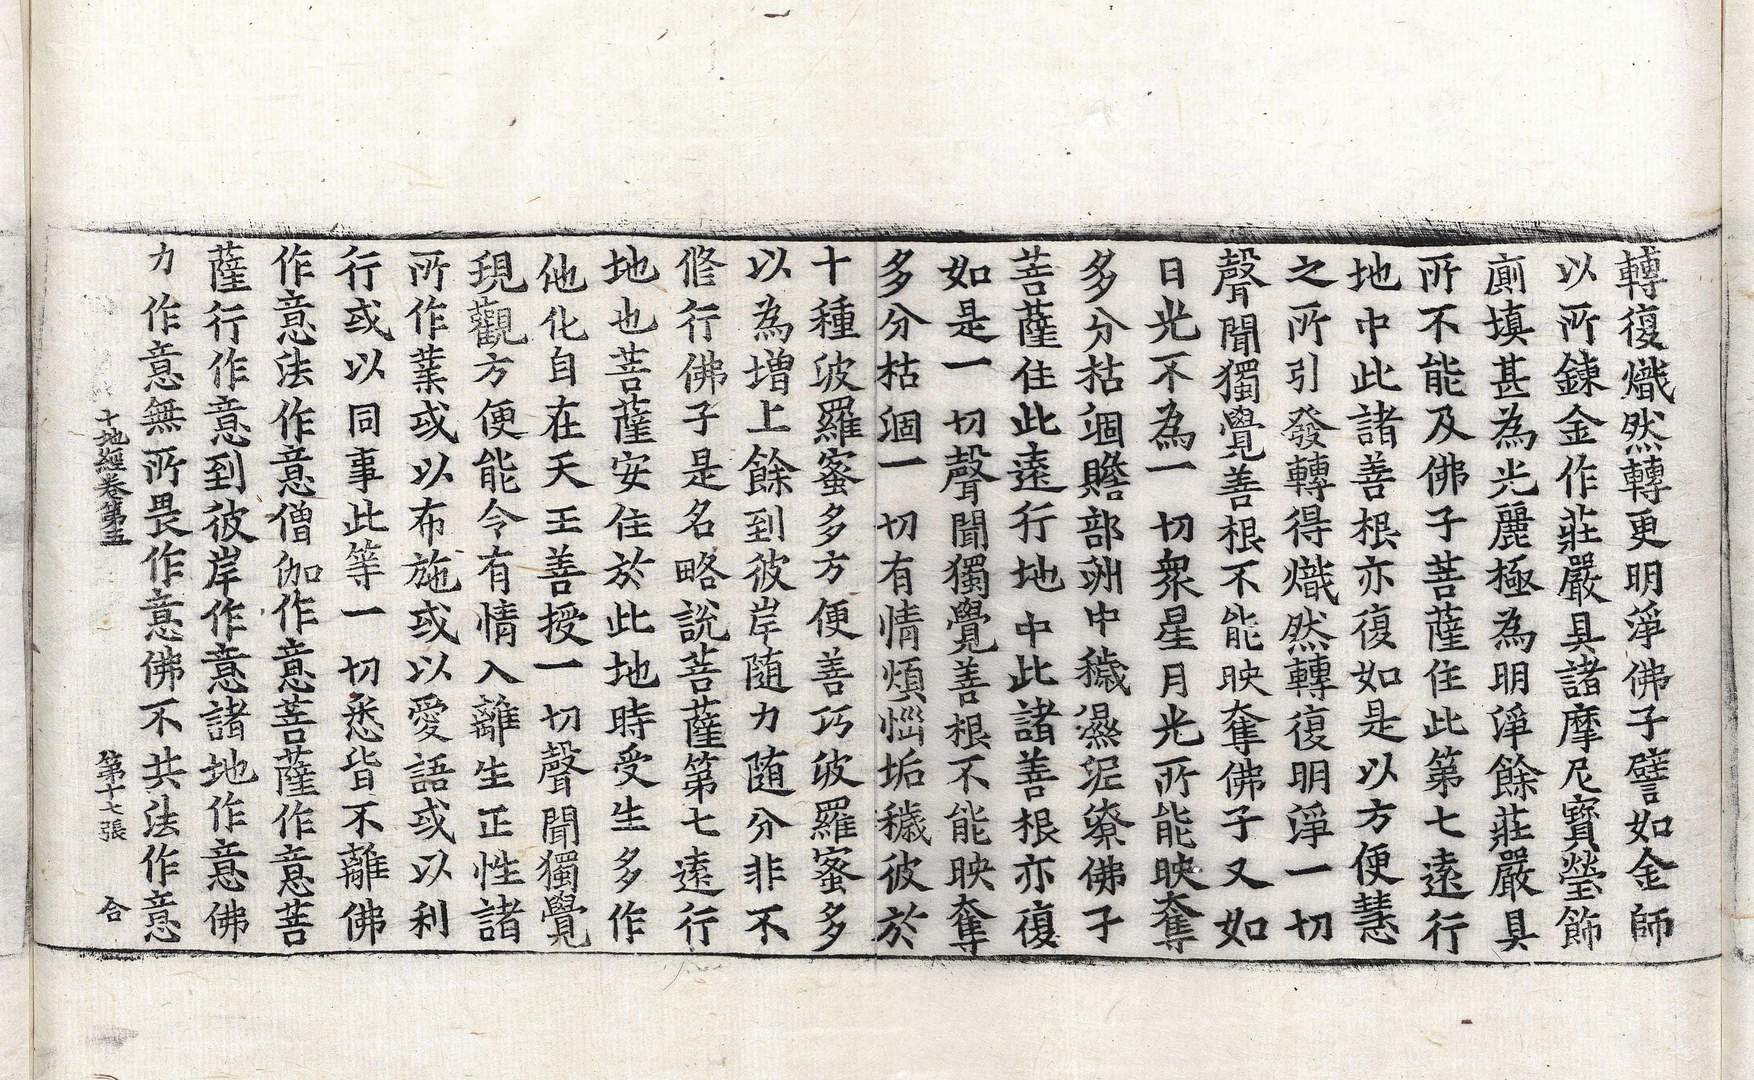 轉復熾然轉更明淨佛子譬如金師
以所鍊金作莊嚴具諸摩尼寶瑩飾
廁填甚為光麗極為明淨餘莊嚴具
所不能及佛子菩薩住此第七遠行
地中此諸善根亦復如是以方便慧
之所引發轉得熾然轉復明淨一切
聲聞獨覺善根不能映奪佛子又如
日光不為一切眾星月光所能映奪
多分枯涸贍部洲中穢濕泥潦佛子
菩薩住此遠行地中此諸善根亦復
如是一切聲聞獨覺善根不能映奪
多分枯涸一切有情煩惱垢穢彼於
十種波羅蜜多方便善巧波羅蜜多
以為增上餘到彼岸隨力隨分非不
修行佛子是名略說菩薩第七遠行
地也菩薩安住於此地時受生多作
他化自在天王善授一切聲聞獨覺
現觀方便能令有情入離生正性諸
所作業或以布施或以愛語或以利
行或以同事此等一切悉皆不離佛
作意法作意僧伽作意菩薩作意菩
薩行作意到彼岸作意諸地作意佛
力作意無所畏作意佛不共法作意
十地經卷第五 第十七張 合